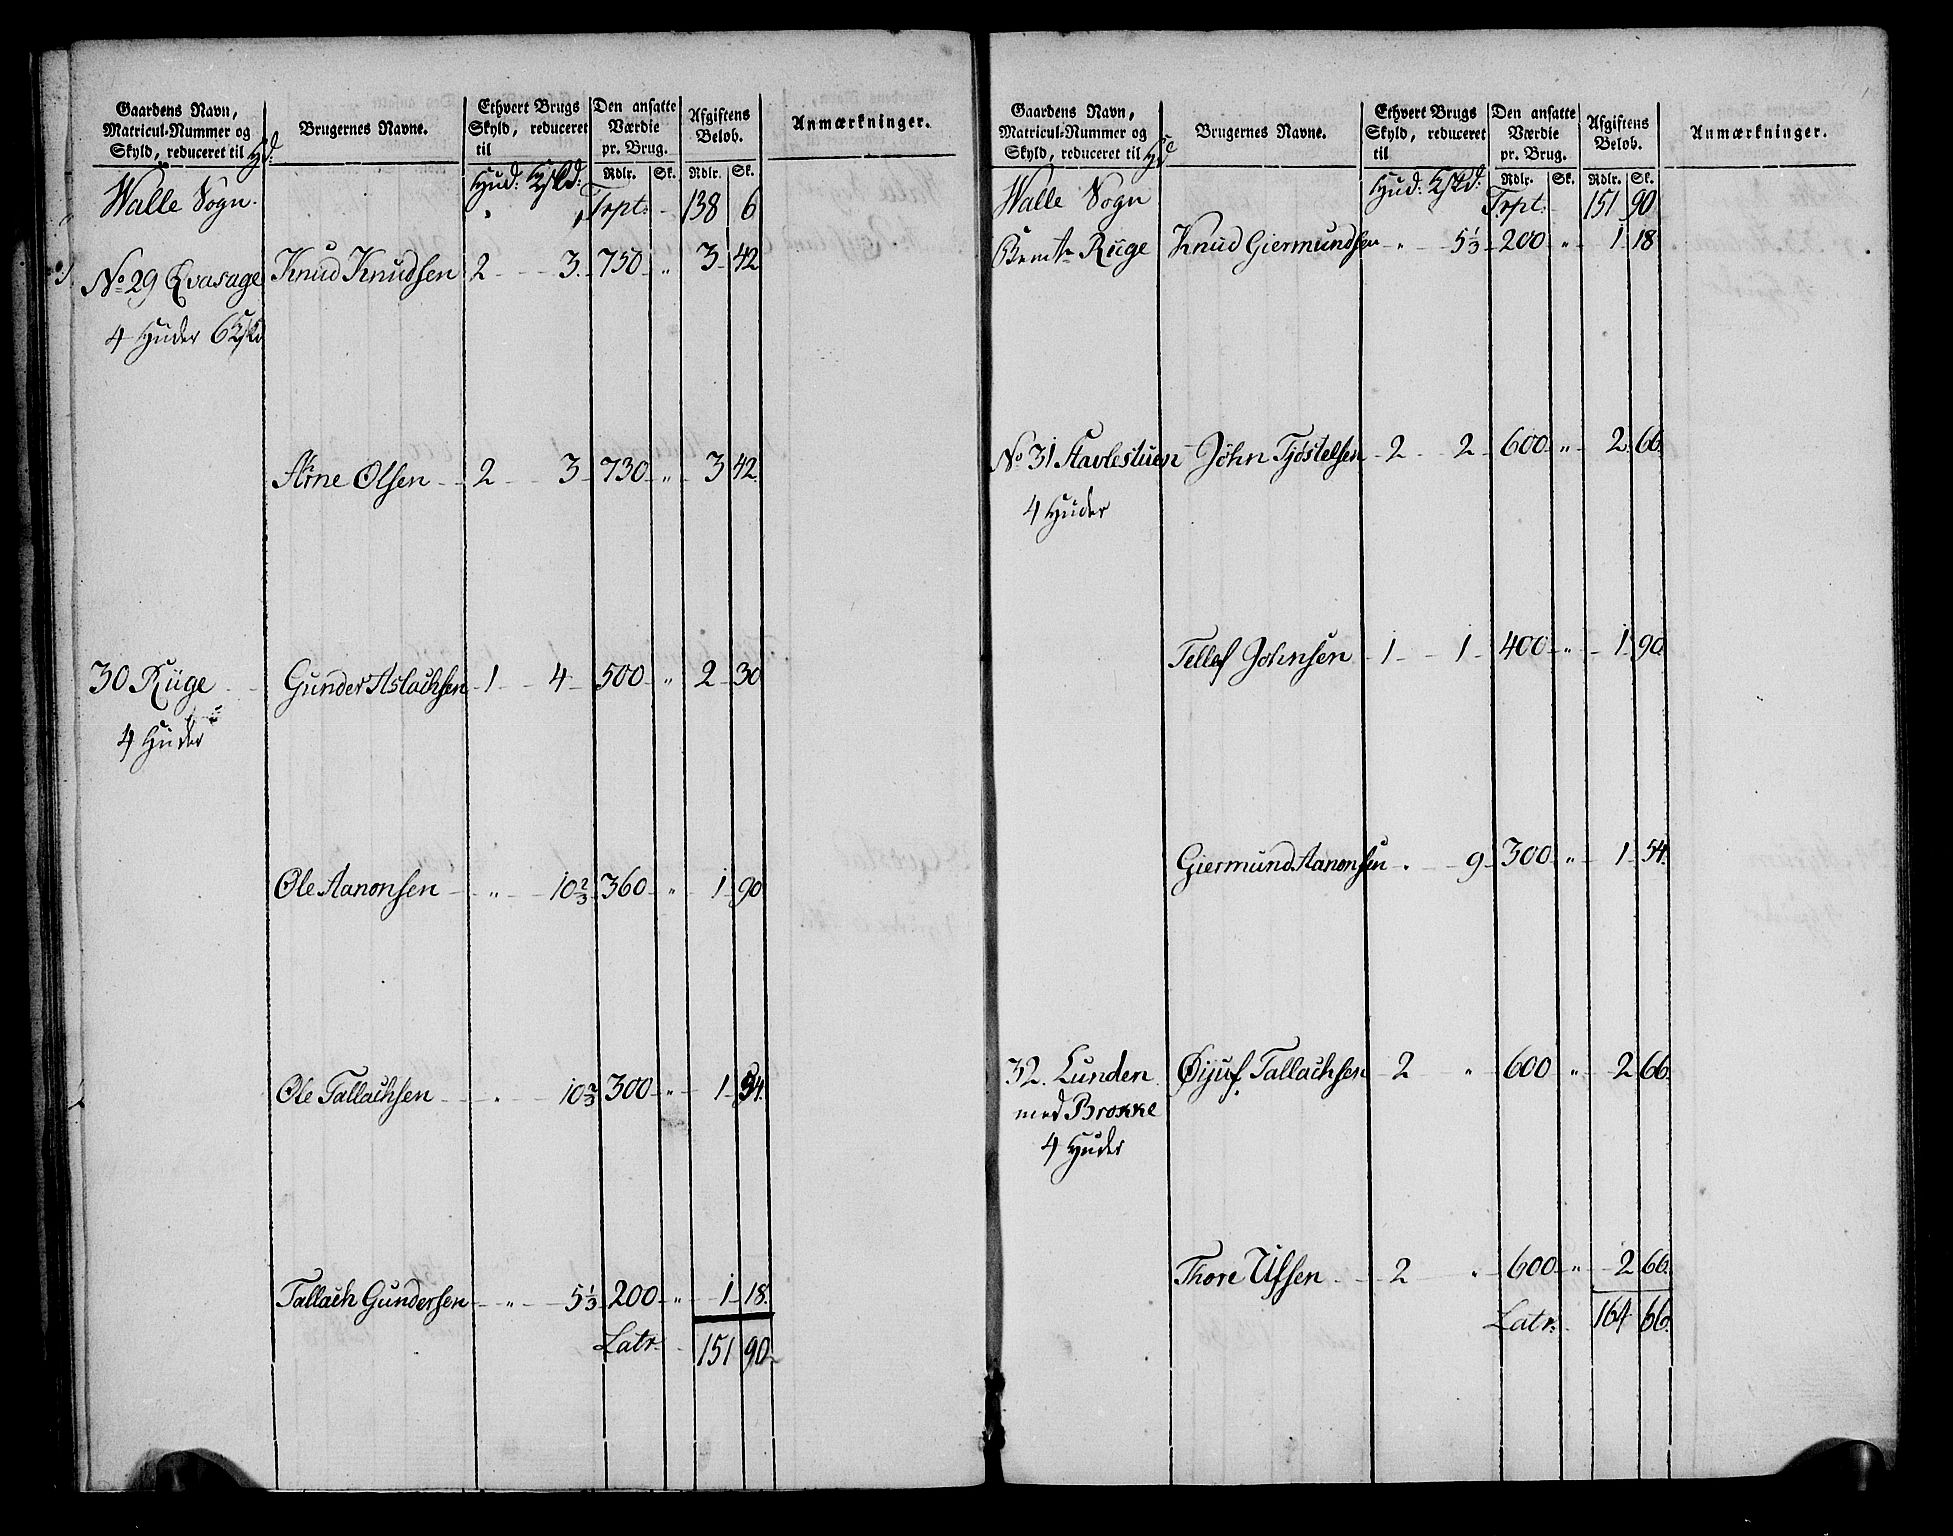 Gaardens Navn, Matricul-Nummer og Skyld, reduceret til Hd:
Brugernes Navne.
Ethvert Brugs Skyld, reduceret til
Den ansatte Værdie pr. Brug.
Afgiftens Beløb.
Anmærkninger.
Rdlr. Sk. Rdlr. Sk.
Walle Sogn. Hud: Trpt: 138 6
No 29 Qvasage Knud Knudsen 2 3 750 „ 3 42
4 Huder 6
Arne Olsen 2 3 730 „ 3 42
30 Ruge Gunder Aslachsen 1 4 500 „ 2 30
4 Huder
Ole Aanonsen „ 10 2/3 360 „ 1 90
Ole Tallachsen „ 10 2/3 300 „ 1 54.
Tallach Gundersen „ 5 1/3 200 „ 1 18.
Latr: 151 90
Gaardens Navn, Matricul-Nummer og Skyld, reduceret til Hd
Brugernes Navne.
Ethvert Brugs Skyld, reduceret til
Den ansatte Værdie pr. Brug.
Afgiftens Beløb.
Anmærkninger.
Rdlr. Sk. Rdlr. Sk.
Walle Sogn Hud: Trpt: 151 90
Ruge Knud Giermundsen „ 5 1/3 200 „ 1 18
No 31 Stavlestuen John Tjøstelsen 2 2 600 „ 2 66.
4 Huder
Tellef Johnsen 1 1 400 „ 1 90
Giermund Aanonsen „ 9 300 „ 1 54.
32. Lunden Øijuf Tallachsen 2 „ 600 „ 2 66.
med Brokke
4 Huder
Thore Ufsen 2 „ 600 „ 2 66.
Latr: 164 66.